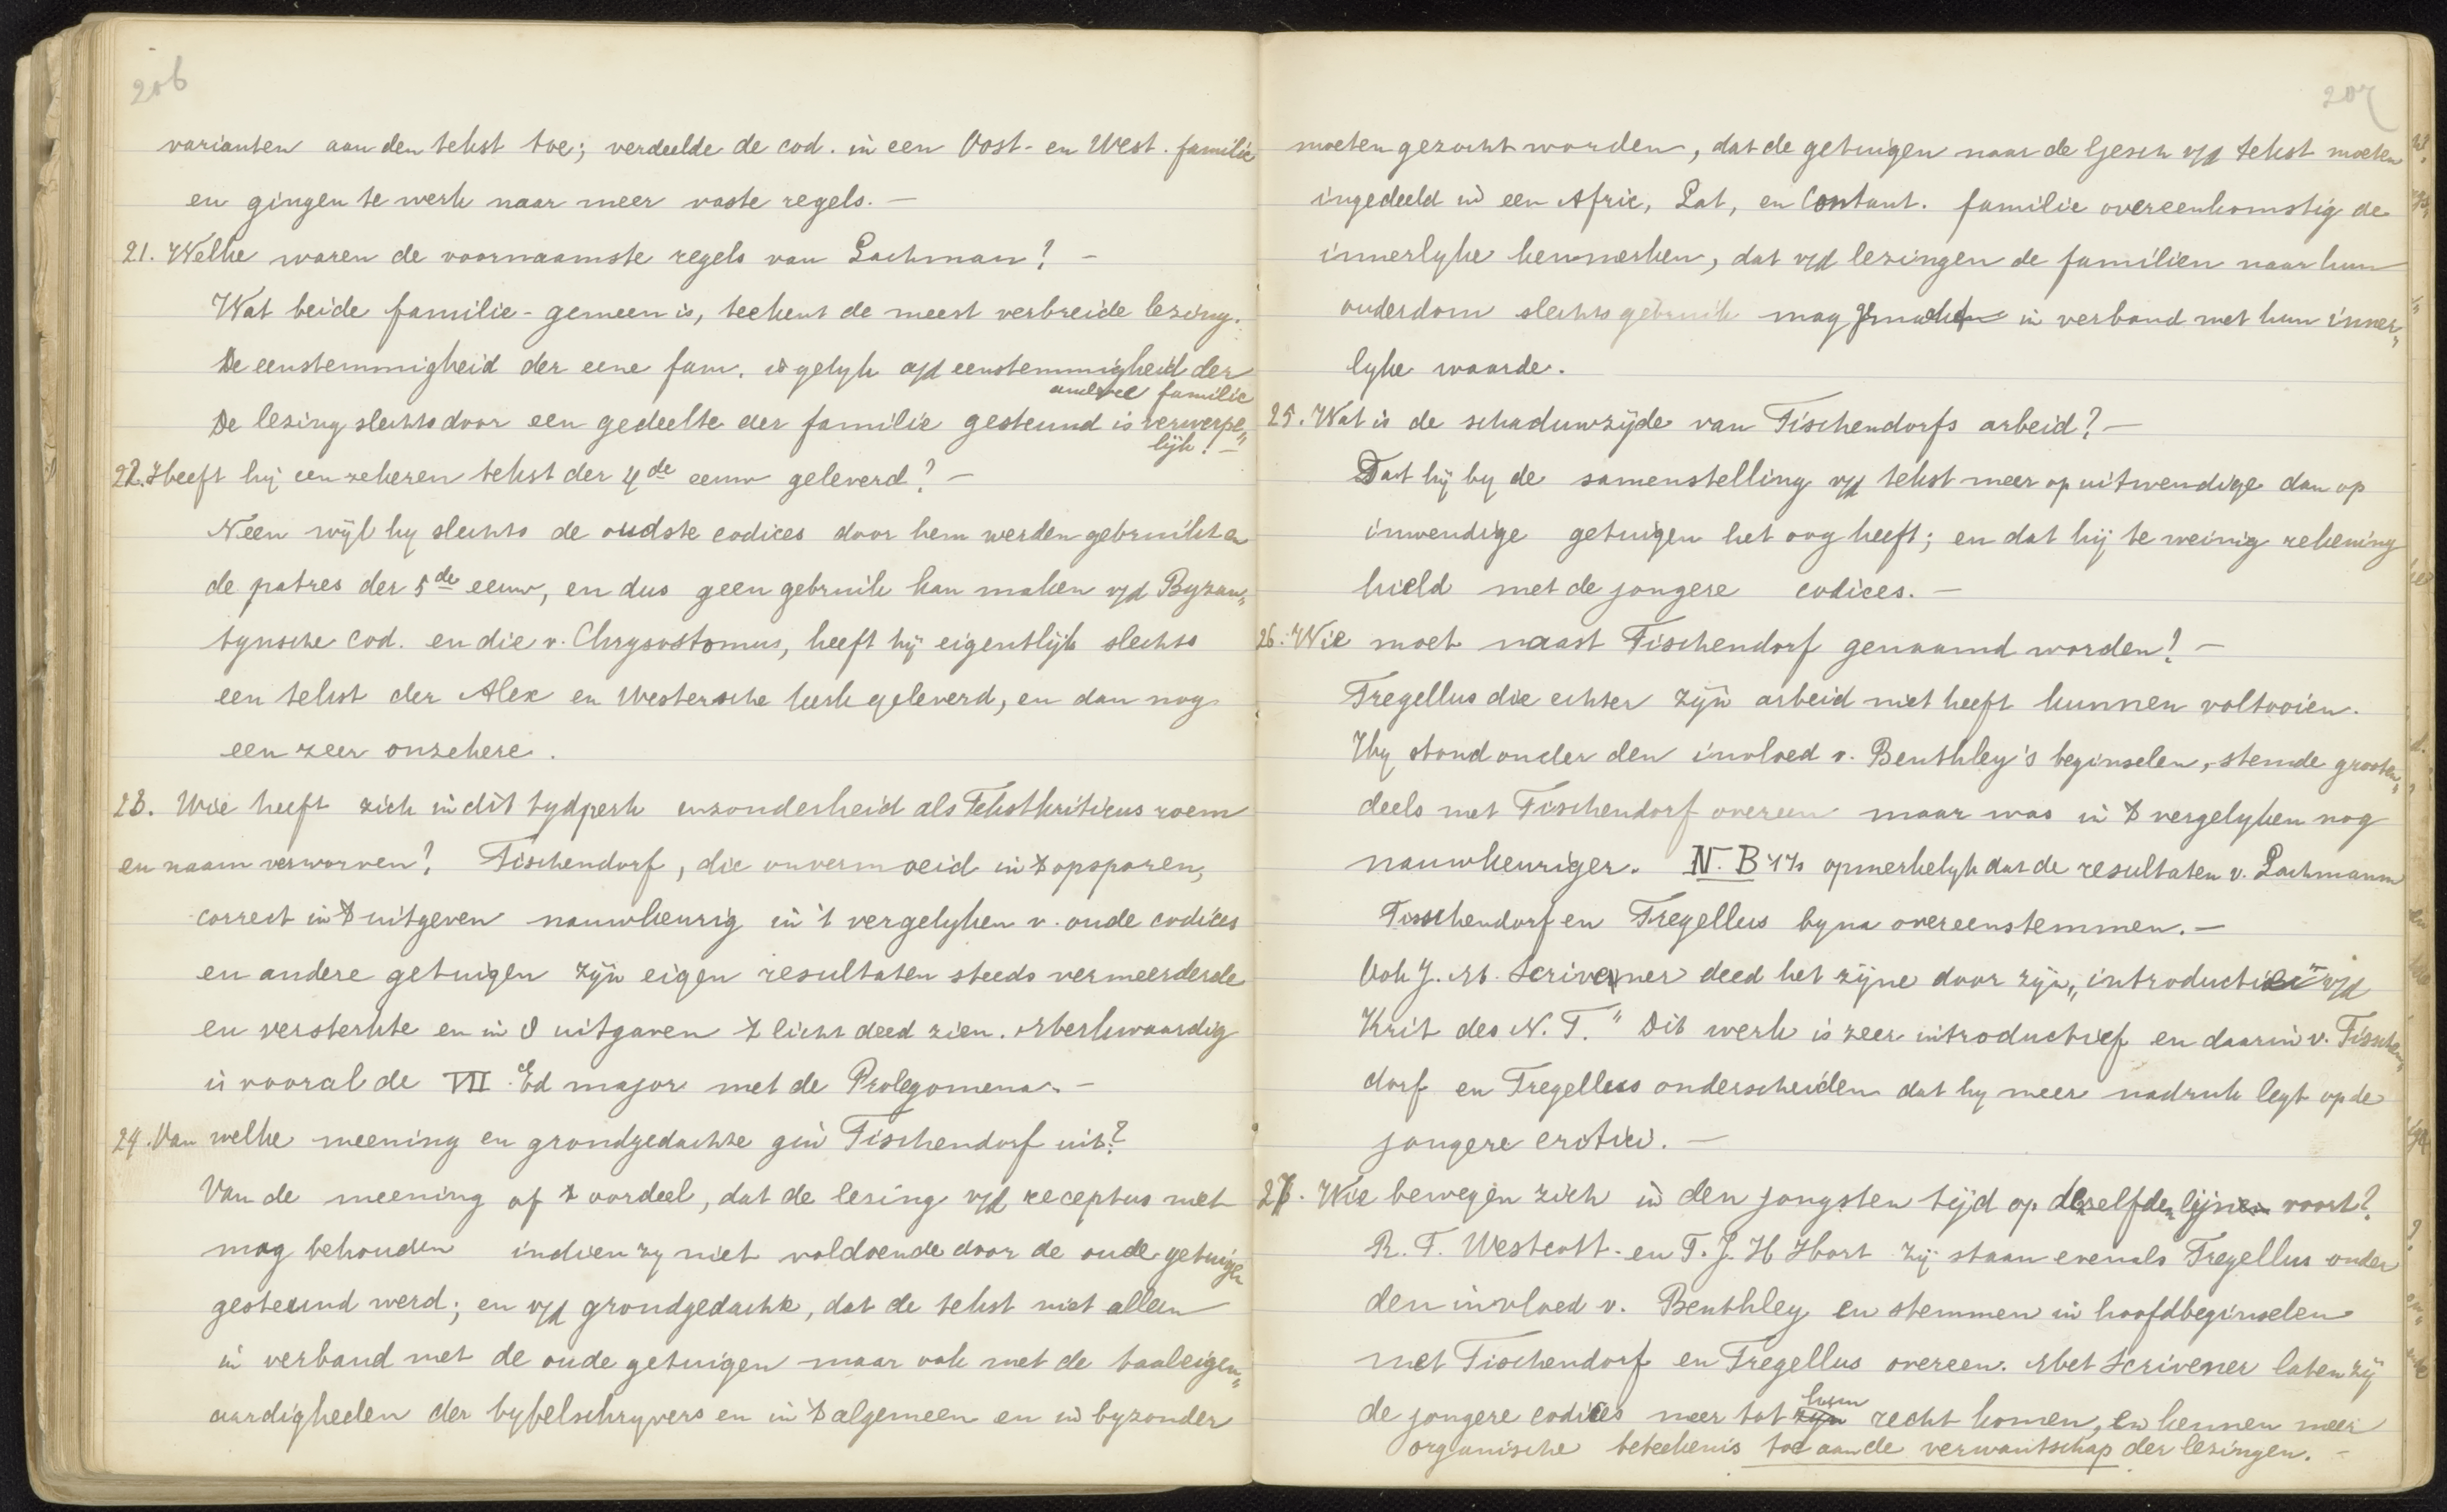 206
varianten aan den tekst toe; verdeelde de cod. in een Oost- en West. familie
en gingen te werk naar meer vaste regels. —
21. Welke waren de voornaamste regels van Lachman? —
Wat beide familie - gemeen is, teekent de meest verbreide lezing.
De eenstemmigheid der eene fam. is gelyk a/d eenstemmigheid der
andere familie
De lezing slechts door een gedeelte der familie gesteund is verwerpe„
lijk! —
22. Heeft hij een zekeren tekst der 4de eeuw geleverd? —
Neen wijl hy slechts de oudste codices door hem werden gebruikt en
de patres der 5de eeuw, en dus geen gebruik kan maken v/d Byzan„
tynsche Cod. en die v. Chrysostomus, heeft hij eigentlijk slechts
een tekst der Alex en Westersche kerk geleverd, en dan nog
een zeer onzekere.
23. Wie heeft zich in dit tydperk inzonderheid als Tekstkriticus roem
en naam verworven? Tischendorf, die onvermoeid in 't opsporen,
correct in 't uitgeven nauwkeurig in 't vergelyken v. oude codices
en andere getuigen zijn eigen resultaten steeds vermeerderde
en versterkte en in 8 uitgaven 't licht deed zien. Merkwaardig
is vooral de VII Ed major met de Prolegomena. —
24. Van welke meening en grondgedachte gin Tischendorf uit?
Van de meening of 't oordeel, dat de lezing v/d receptus met
mag behouden indien zy niet voldoende door de oude getuigen
gesteund werd; en v/d grondgedachte, dat de tekst niet alleen
in verband met de oude getuigen maar ook met de taaleigen„
aardigheden der bybelschryvers en in 't algemeen en in byzonder
207
moeten gezocht worden, dat de getuigen naar de Gesch v/d tekst moeten
ingedeeld in een Afric, Lat, en Constant. familie overeenkomstig de
innerlyke kenmerken, dat v/d lezingen de familien naar hun
ouderdom slechts gebruik mag gemaakt in verband met hun inner„
lyke waarde.
25. Wat is de schaduwzijde van Tischendorfs arbeid? —
Dat hij by de samenstelling v/d tekst meer op uitwendige dan op
inwendige getuigen het oog heeft; en dat hij te weinig rekening
hield met de jongere codices. —
26. Wie moet naast Tischendorf genaamd worden? —
Tregellus die echter zijn arbeid niet heeft kunnen voltooien.
Hy stond onder den invloed v. Benthley's beginselen, stemde grooten„
deels met Tischendorf overeen maar was in 't vergelyken nog
nauwkeuriger. N. B 't Is opmerkelyk dat de resultaten v. Lachmann
Tisschendorf en Tregellus byna overeenstemmen. —
Ook J. M. Scrivener deed het zijne door zijn „introductie" v/d
Krit des N. T." Dit werk is zeer introductief en daarin v. Tischen„
dorf en Tregellus onderscheiden dat hy meer nadruk legt op de
jongere critici. —
27. Wie bewegen zich in den jongsten tijd op dezelfde lijnen voort?
R. F. Westcott. en T. J. H Hort zij staan evenals Tregellus onder
den invloed v. Benthley en stemmen in hoofdbeginselen
met Tischendorf en Tregellus overeen. Met Scrivener laten zij
de jongere codices meer tot zijn hun recht komen, en kennen meer
organische beteekenis toe aan de verwantschap der lezingen. —